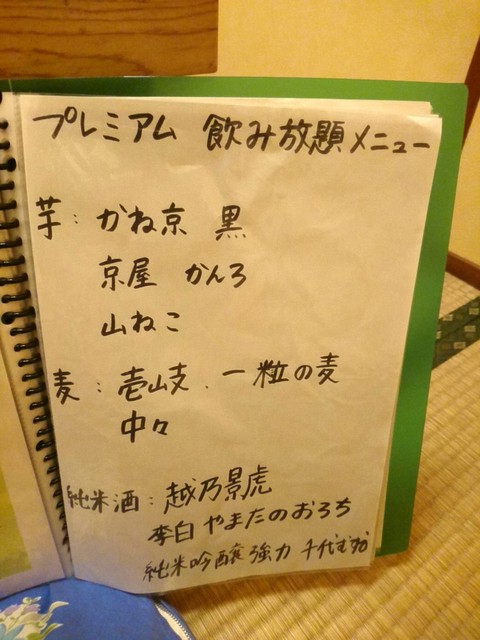 プレミアム 飲み放題メニュー
芋：かね京 黒
京屋 かんろ
山ねこ
麦：壱岐．一粒の麦
中々
純米酒：越乃景虎
李白 やまたのおろち
純米吟醸 強力 千代むすび